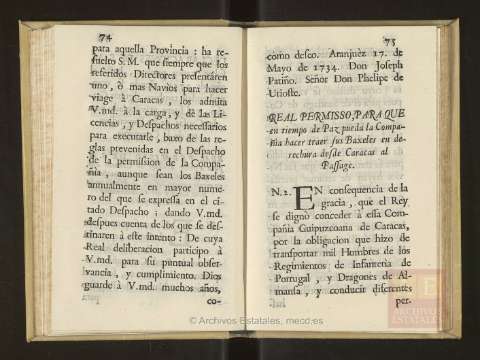 74
para aquella Provincia : ha re-
suelto S. M. que siempre que los
referidos Directores presentaren
uno, ò mas Navios para hacer
viage à Caracas , los admita
V.md. à la carga, y dè las Li-
cencias , y Despachos necessarios
para executarle , baxo de las re-
glas prevenidas en el Despacho
de la permission de la Compa-
ñia , aunque sean los Baxeles
annualmente en mayor nume-
ro del que se expressa en el ci-
tado Despacho ; dando V.md.
despues cuenta de los que se des-
tinaren à este intento : De cuya
Real deliberacion participo à
V.md. para su puntual obser-
vancia , y cumplimiento. Dios
guarde à V.md. muchos años,
co-
75
como deseo. Aranjuèz 17. de
Mayo de 1734. Don Joseph
Patiño. Señor Don Phelipe de
Urioste.
REAL PERMISSO, PARA QUE
en tiempo de Paz pueda la Compa-
ñia hacer traer sus Baxeles en de-
rechura desde Caracas al
Passage.
N. 2. EN consequencia de la
gracia , que el Rey
se dignò conceder à essa Com-
pañia Guipuzcoana de Caracas,
por la obligacion que hizo de
transportar mil Hombres de los
Regimientos de Infanteria de
Portugal , y Dragones de Al-
mansa , y conducir diferentes
per-
© Archivos Estatales, mecd.es
ARCHIVOS
ESTATALES